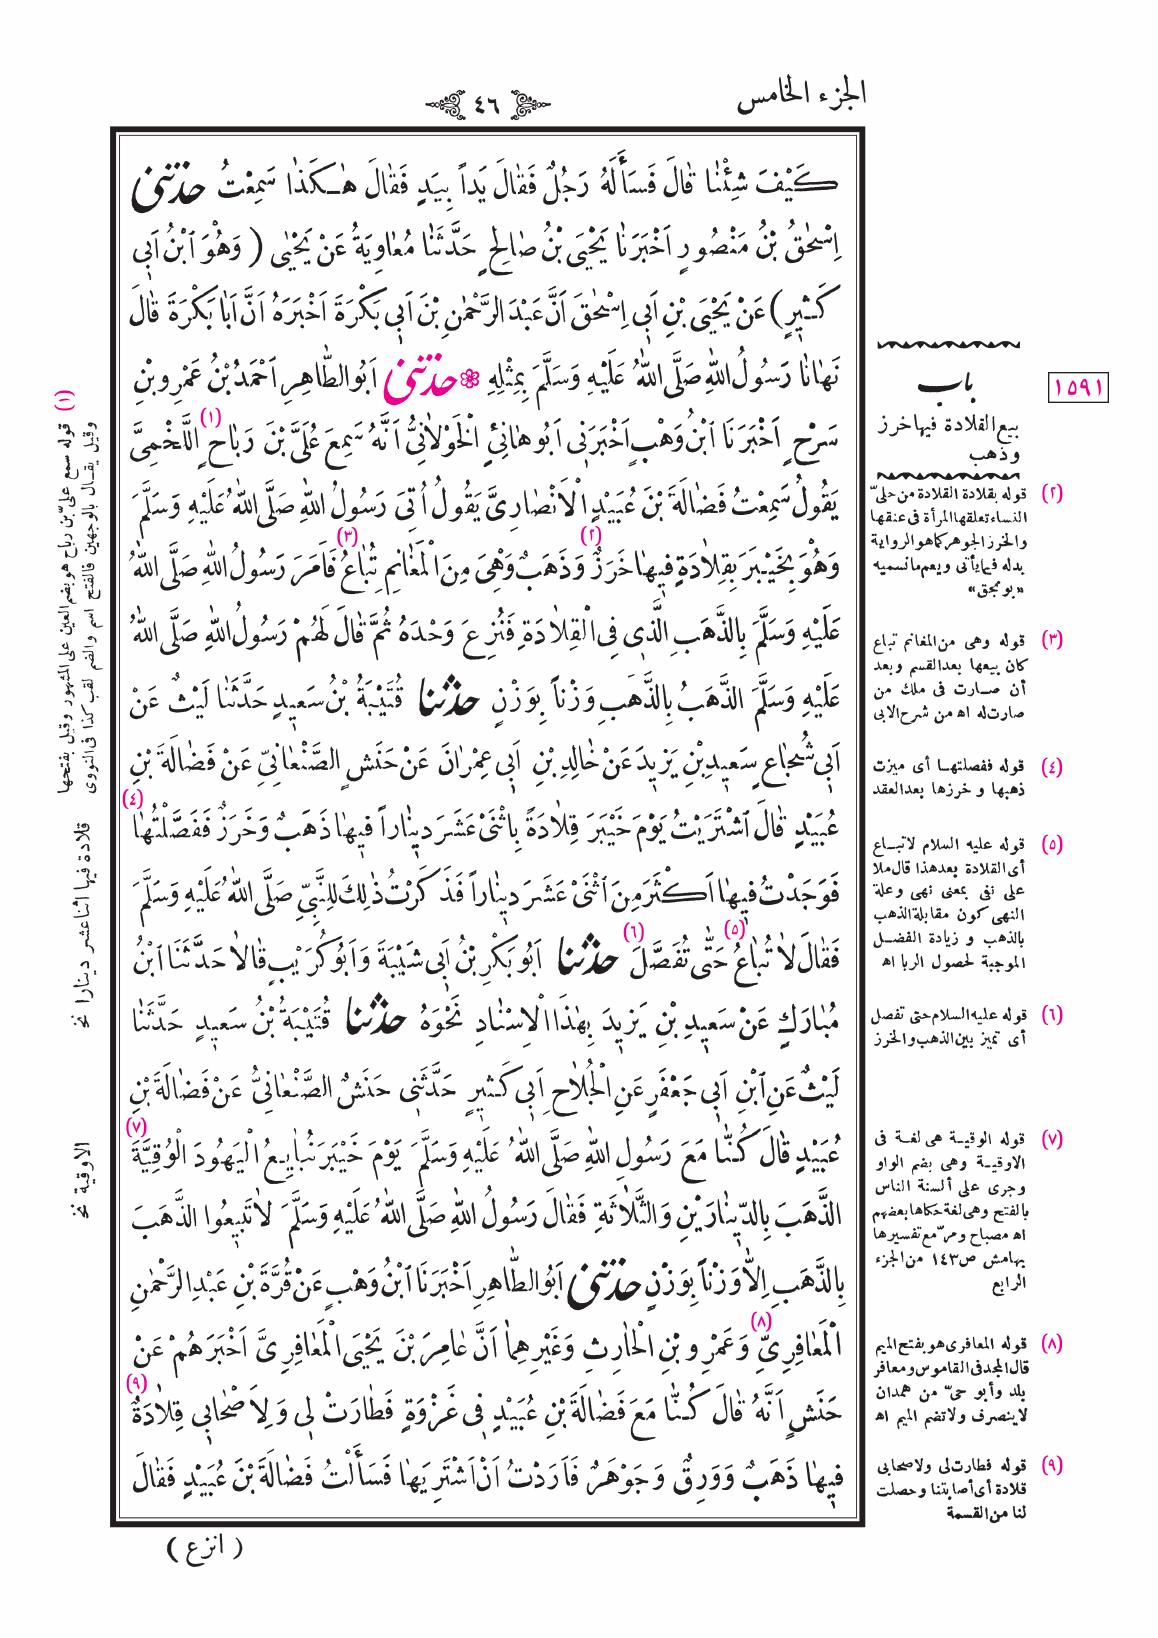 الجزء الخامس
٤٦
كَيْفَ شِئْنَا قَالَ فَسَأَلَهُ رَجُلٌ فَقَالَ يَداً بِيَدٍ فَقَالَ هٰكَذَا سَمِعْتُ حَدَّثَنِي
اِسْحٰقُ بْنُ مَنْصُورٍ اَخْبَرَنَا يَحْيَى بْنُ صَالِحٍ حَدَّثَنَا مُعَاوِيَةُ عَنْ يَحْيٰى ( وَهُوَ ابْنُ اَبِي
كَثِيرٍ) عَنْ يَحْيَى بْنِ اَبِي اِسْحٰقَ اَنَّ عَبْدَ الرَّحْمٰنِ بْنَ اَبِي بَكْرَةَ اَخْبَرَهُ اَنَّ اَبَا بَكْرَةَ قَالَ
نَهَانَا رَسُولُ اللهِ صَلَّى اللهُ عَلَيْهِ وَسَلَّمَ بِمِثْلِهِ ❁ حَدَّثَنِي اَبُو الطَّاهِرِ اَحْمَدُ بْنُ عَمْرِو بْنِ
سَرْحٍ اَخْبَرَنَا ابْنُ وَهْبٍ اَخْبَرَنِي اَبُو هَانِئٍ الْخَوْلَانِيُّ اَنَّهُ سَمِعَ عُلَيَّ بْنَ رَبَاحٍ (١) اللَّخْمِيَّ
يَقُولُ سَمِعْتُ فَضَالَةَ بْنَ عُبَيْدٍ الْاَنْصَارِيَّ يَقُولُ اُتِيَ رَسُولُ اللهِ صَلَّى اللهُ عَلَيْهِ وَسَلَّمَ
وَهُوَ بِخَيْبَرَ بِقِلَادَةٍ (٢) فِيهَا خَرَزٌ وَذَهَبٌ وَهِيَ مِنَ الْمَغَانِمِ تُبَاعُ (٣) فَاَمَرَ رَسُولُ اللهِ صَلَّى اللهُ
عَلَيْهِ وَسَلَّمَ بِالذَّهَبِ الَّذِي فِي الْقِلَادَةِ فَنُزِعَ وَحْدَهُ ثُمَّ قَالَ لَهُمْ رَسُولُ اللهِ صَلَّى اللهُ
عَلَيْهِ وَسَلَّمَ الذَّهَبُ بِالذَّهَبِ وَزْناً بِوَزْنٍ حَدَّثَنَا قُتَيْبَةُ بْنُ سَعِيدٍ حَدَّثَنَا لَيْثٌ عَنْ
اَبِي شُجَاعٍ سَعِيدِ بْنِ يَزِيدَ عَنْ خَالِدِ بْنِ اَبِي عِمْرَانَ عَنْ حَنَشٍ الصَّنْعَانِيِّ عَنْ فَضَالَةَ بْنِ
عُبَيْدٍ قَالَ اشْتَرَيْتُ يَوْمَ خَيْبَرَ قِلَادَةً بِاثْنَيْ عَشَرَ دِينَاراً فِيهَا ذَهَبٌ وَخَرَزٌ فَفَصَّلْتُهَا (٤)
فَوَجَدْتُ فِيهَا اَكْثَرَ مِنَ اثْنَيْ عَشَرَ دِينَاراً فَذَكَرْتُ ذٰلِكَ لِلنَّبِيِّ صَلَّى اللهُ عَلَيْهِ وَسَلَّمَ
فَقَالَ لَا تُبَاعُ (٥) حَتّٰى تُفَصَّلَ (٦) حَدَّثَنَا اَبُو بَكْرِ بْنُ اَبِي شَيْبَةَ وَاَبُو كُرَيْبٍ قَالَا حَدَّثَنَا ابْنُ
مُبَارَكٍ عَنْ سَعِيدِ بْنِ يَزِيدَ بِهٰذَا الْاِسْنَادِ نَحْوَهُ حَدَّثَنَا قُتَيْبَةُ بْنُ سَعِيدٍ حَدَّثَنَا
لَيْثٌ عَنِ ابْنِ اَبِي جَعْفَرٍ عَنِ الْجُلَاحِ اَبِي كَثِيرٍ حَدَّثَنِي حَنَشٌ الصَّنْعَانِيُّ عَنْ فَضَالَةَ بْنِ
عُبَيْدٍ قَالَ كُنَّا مَعَ رَسُولِ اللهِ صَلَّى اللهُ عَلَيْهِ وَسَلَّمَ يَوْمَ خَيْبَرَ نُبَايِعُ الْيَهُودَ الْوُقِيَّةَ (٧)
الذَّهَبَ بِالدِّينَارَيْنِ وَالثَّلَاثَةِ فَقَالَ رَسُولُ اللهِ صَلَّى اللهُ عَلَيْهِ وَسَلَّمَ لَا تَبِيعُوا الذَّهَبَ
بِالذَّهَبِ اِلَّا وَزْناً بِوَزْنٍ حَدَّثَنِي اَبُو الطَّاهِرِ اَخْبَرَنَا ابْنُ وَهْبٍ عَنْ قُرَّةَ بْنِ عَبْدِ الرَّحْمٰنِ
الْمَعَافِرِيِّ (٨) وَعَمْرِو بْنِ الْحَارِثِ وَغَيْرِهِمَا اَنَّ عَامِرَ بْنَ يَحْيَى الْمَعَافِرِيَّ اَخْبَرَهُمْ عَنْ
حَنَشٍ اَنَّهُ قَالَ كُنَّا مَعَ فَضَالَةَ بْنِ عُبَيْدٍ فِي غَزْوَةٍ فَطَارَتْ لِي وَلِاَصْحَابِي قِلَادَةٌ (٩)
فِيهَا ذَهَبٌ وَوَرِقٌ وَجَوْهَرٌ فَاَرَدْتُ اَنْ اَشْتَرِيَهَا فَسَأَلْتُ فَضَالَةَ بْنَ عُبَيْدٍ فَقَالَ
( انزع )
١٥٩١
باب
بيع القلادة فيها خرز
وذهب
(٢) قوله بقلادة القلادة من حلىّ
النساء تعلقها المرأة فى عنقها
والخرز الجوهر كما هو الرواية
بدله فيما يأتى ويعم ما نسميه
«بونجق»
(٣) قوله وهى من المغانم تباع
كان بيعها بعد القسم وبعد
أن صارت فى ملك من
صارت له اه من شرح الابى
(٤) قوله ففصلتها أى ميزت
ذهبها و خرزها بعد العقد
(٥) قوله عليه السلام لاتباع
أى القلادة بعد هذا قال ملا
على نفى بمعنى نهى وعلة
النهى كون مقابلة الذهب
بالذهب و زيادة الفضل
الموجبة لحصول الربا اه
(٦) قوله عليه السلام حتى تفصل
أى تميز بين الذهب والخرز
(٧) قوله الوقية هى لغة فى
الاوقية وهى بضم الواو
وجرى على ألسنة الناس
بالفتح وهى لغة حكاها بعضهم
اه مصباح ومرّ مع تفسيرها
بهامش ص١٤٣ من الجزء
الرابع
(٨) قوله المعافرى هو بفتح الميم
قال المجد فى القاموس ومعافر
بلد وأبو حىّ من همدان
لا ينصرف ولا تضم الميم اه
(٩) قوله فطارت لى ولاصحابى
قلادة أى أصابتنا وحصلت
لنا من القسمة
(١) قوله سمع علىّ بن رباح هو بضم العين على المشهور وقيل بفتحها
وقيل يقال بالوجهين فالفتح اسم والضم لقب كذا فى النووى
قلادة فيها اثنا عشر دينارا نخ
الاوقية نخ